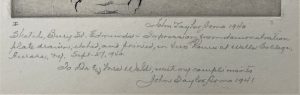 John Taylor Arms 1940
Sketch, Bury St. Edmunds - Impression from demonstration
plate drawn, etched and printed, in two hours at Wells College,
Aurora, N.Y. Sept. 27, 1940
To Dr. Wald with my compliments
John Taylor Arms 1941